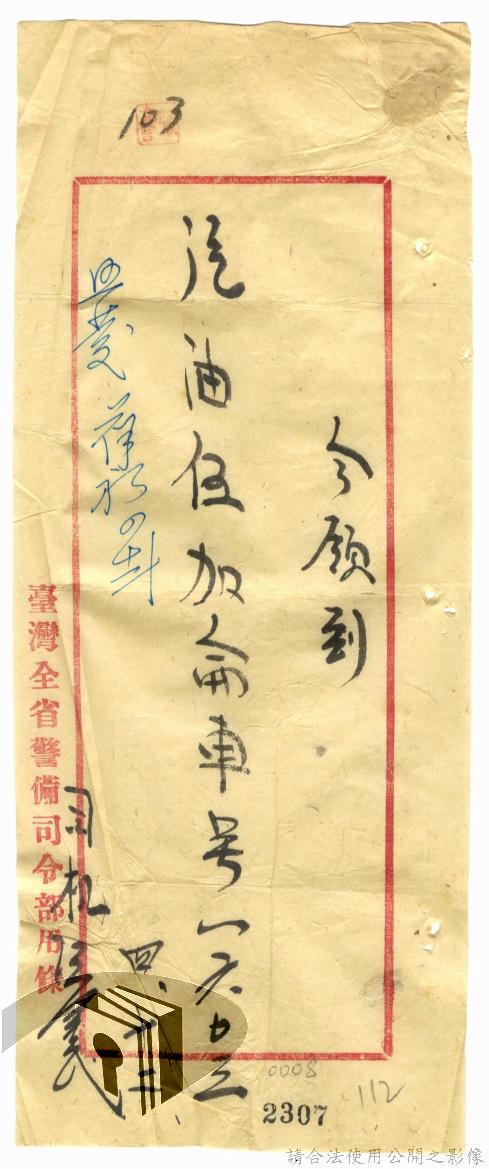 103
今領到
汽油伍加侖車号一六五三
四、十二、
司机
臺灣全省警備司令部用條
0008
112
2307
請合法使用公開之影像